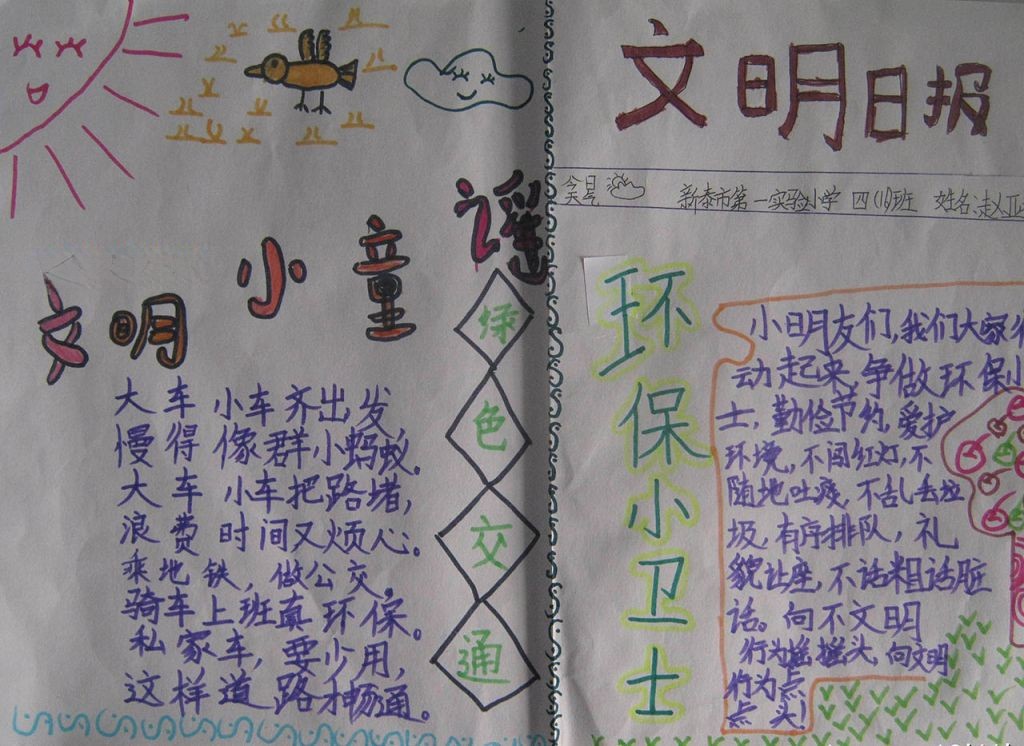 文明日报
今日天气
新泰市第一实验小学 四(1)班 姓名:赵亚
文明小童谣
绿色交通
大车小车齐出发,
慢得像群小蚂蚁。
大车小车把路堵,
浪费时间又烦心。
乘地铁,做公交,
骑车上班真环保。
私家车,要少用,
这样道路才畅通。
环保小卫士
小朋友们,我们大家行
动起来,争做环保小
士,勤俭节约,爱护
环境,不闯红灯,不
随地吐痰,不乱丢垃
圾,有序排队,礼
貌让座,不话粗话脏
话。向不文明
行为摇摇头,向文明
行为点
点头!